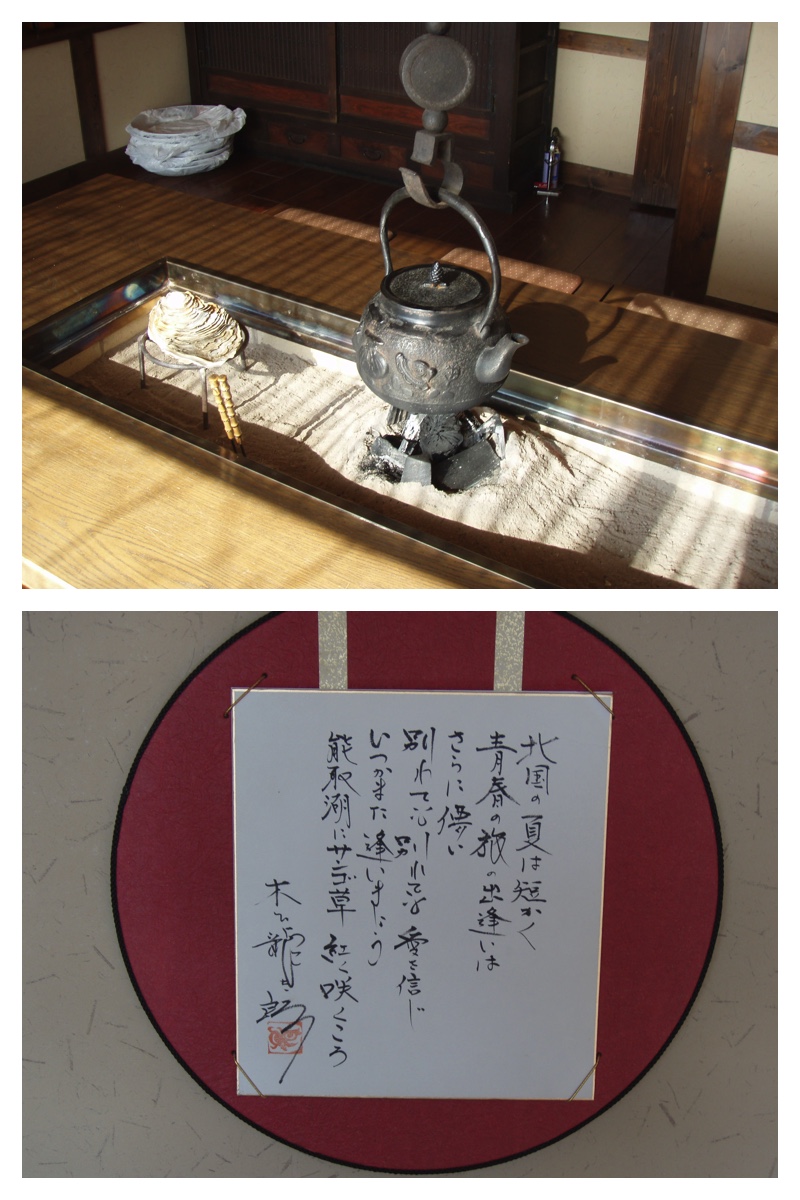 北国の夏は短かく
青春の旅の出逢いは
さらに儚い
別れても別れても愛を信じ
いつかまた逢いましょう
能取湖にサンゴ草 紅く咲くころ